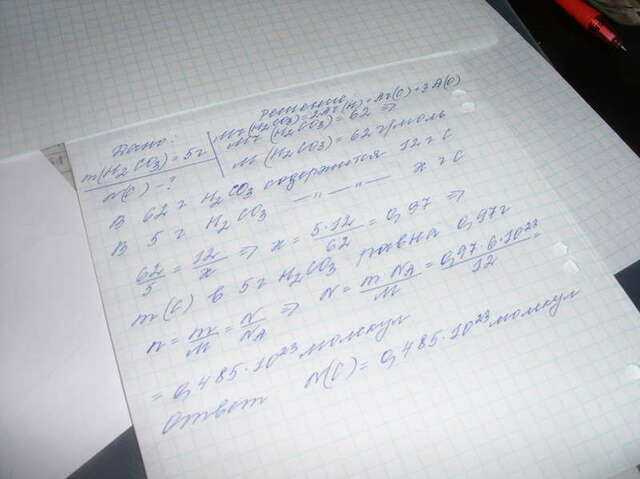 Дано:
m(H2CO3) = 5г
N(C) - ?
решение:
Mr(H2CO3) = 2Ar(H) + Ar(C) + 3A(O)
Mr(H2CO3) = 62 =>
M(H2CO3) = 62 г/моль
В 62 г H2CO3 содержится 12 г C
В 5 г H2CO3 —"—"— x г C
62/5 = 12/x => x = 5·12/62 = 0,97 =>
m(C) в 5г H2CO3 равна 0,97г
n = m/M = N/NA => N = m NA/M = 0,97·6·10^23/12 =
= 0,485·10^23 молкул
ответ N(C) = 0,485·10^23 молкул